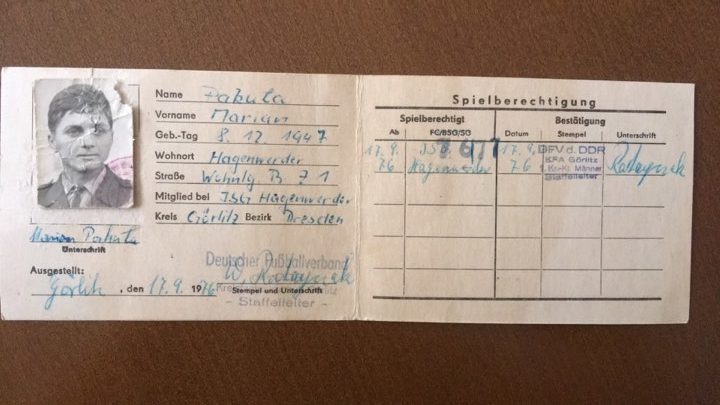 Name Pakuła
Vorname Marian
Geb.-Tag 8. 12. 1947
Wohnort Hagenwerder
Straße Wohnlg B 71
Mitglied bei ISG Hagenwerder
Kreis Görlitz Bezirk Dresden
Marian Pakuła
Unterschrift
Deutscher Fußballverband
W. Ratajczak
Ausgestellt:
Görlitz, den 17.9. 1976
Stempel und Unterschrift
- Staffelleiter -
Spielberechtigung
Spielberechtigt Bestätigung
Ab FC/BSG/SG Datum Stempel Unterschrift
17.9. ISG 17.9. DFV d. DDR
76 Hagenwerder 76 KFA Görlitz Ratajczak
1. Kr.-Kl. Männer
Staffelleiter